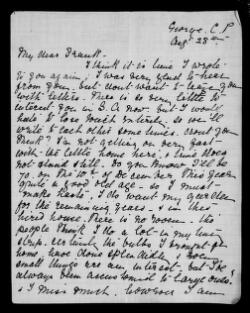 George. C.P.
Aug. 28th
My dear Frank.
I think it is time I wrote
to you again; I was very glad to hear
from you, but dont want to tease you
with letters. There is so very little to
interest you in S.A. now but I would
hate to lose touch entirely so we'll
write to each other some times. Dont you
think? I'm not getting on very fast
with the little home here, & time does
not stand still. Do you know I'll be
70, on the 10th of December this year
quite a good old age — so I must
make haste. I do want my garden
for the remaining years, & in this
hired house there is no room. The
people think I do a lot in my tiny
strip. certainly the bulbs I brought from
home, have done splendidly & even
small things are an interest, but I've
always been accustomed to large outs.
& I miss much. However I am